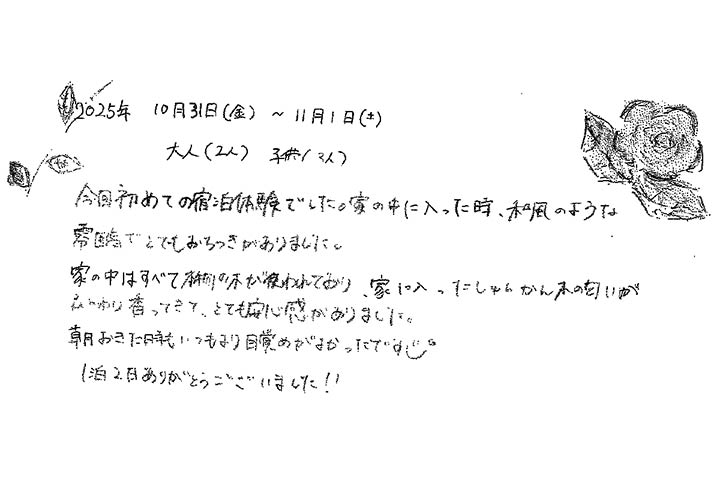 2025年 10月31日(金) ～11月1日(土)
大人(2人) 子供(2人)
今回初めての宿泊体験でした。家の中に入った時、和風のような
雰囲気でとてもおちつきがありました。
家の中はすべて の木が使われており、家に入ったしゅんかん木の匂いが
香ってきて、とても安心感がありました。
朝おきた時もいつもより目覚めがよかったです。
1泊2日ありがとうございました!!